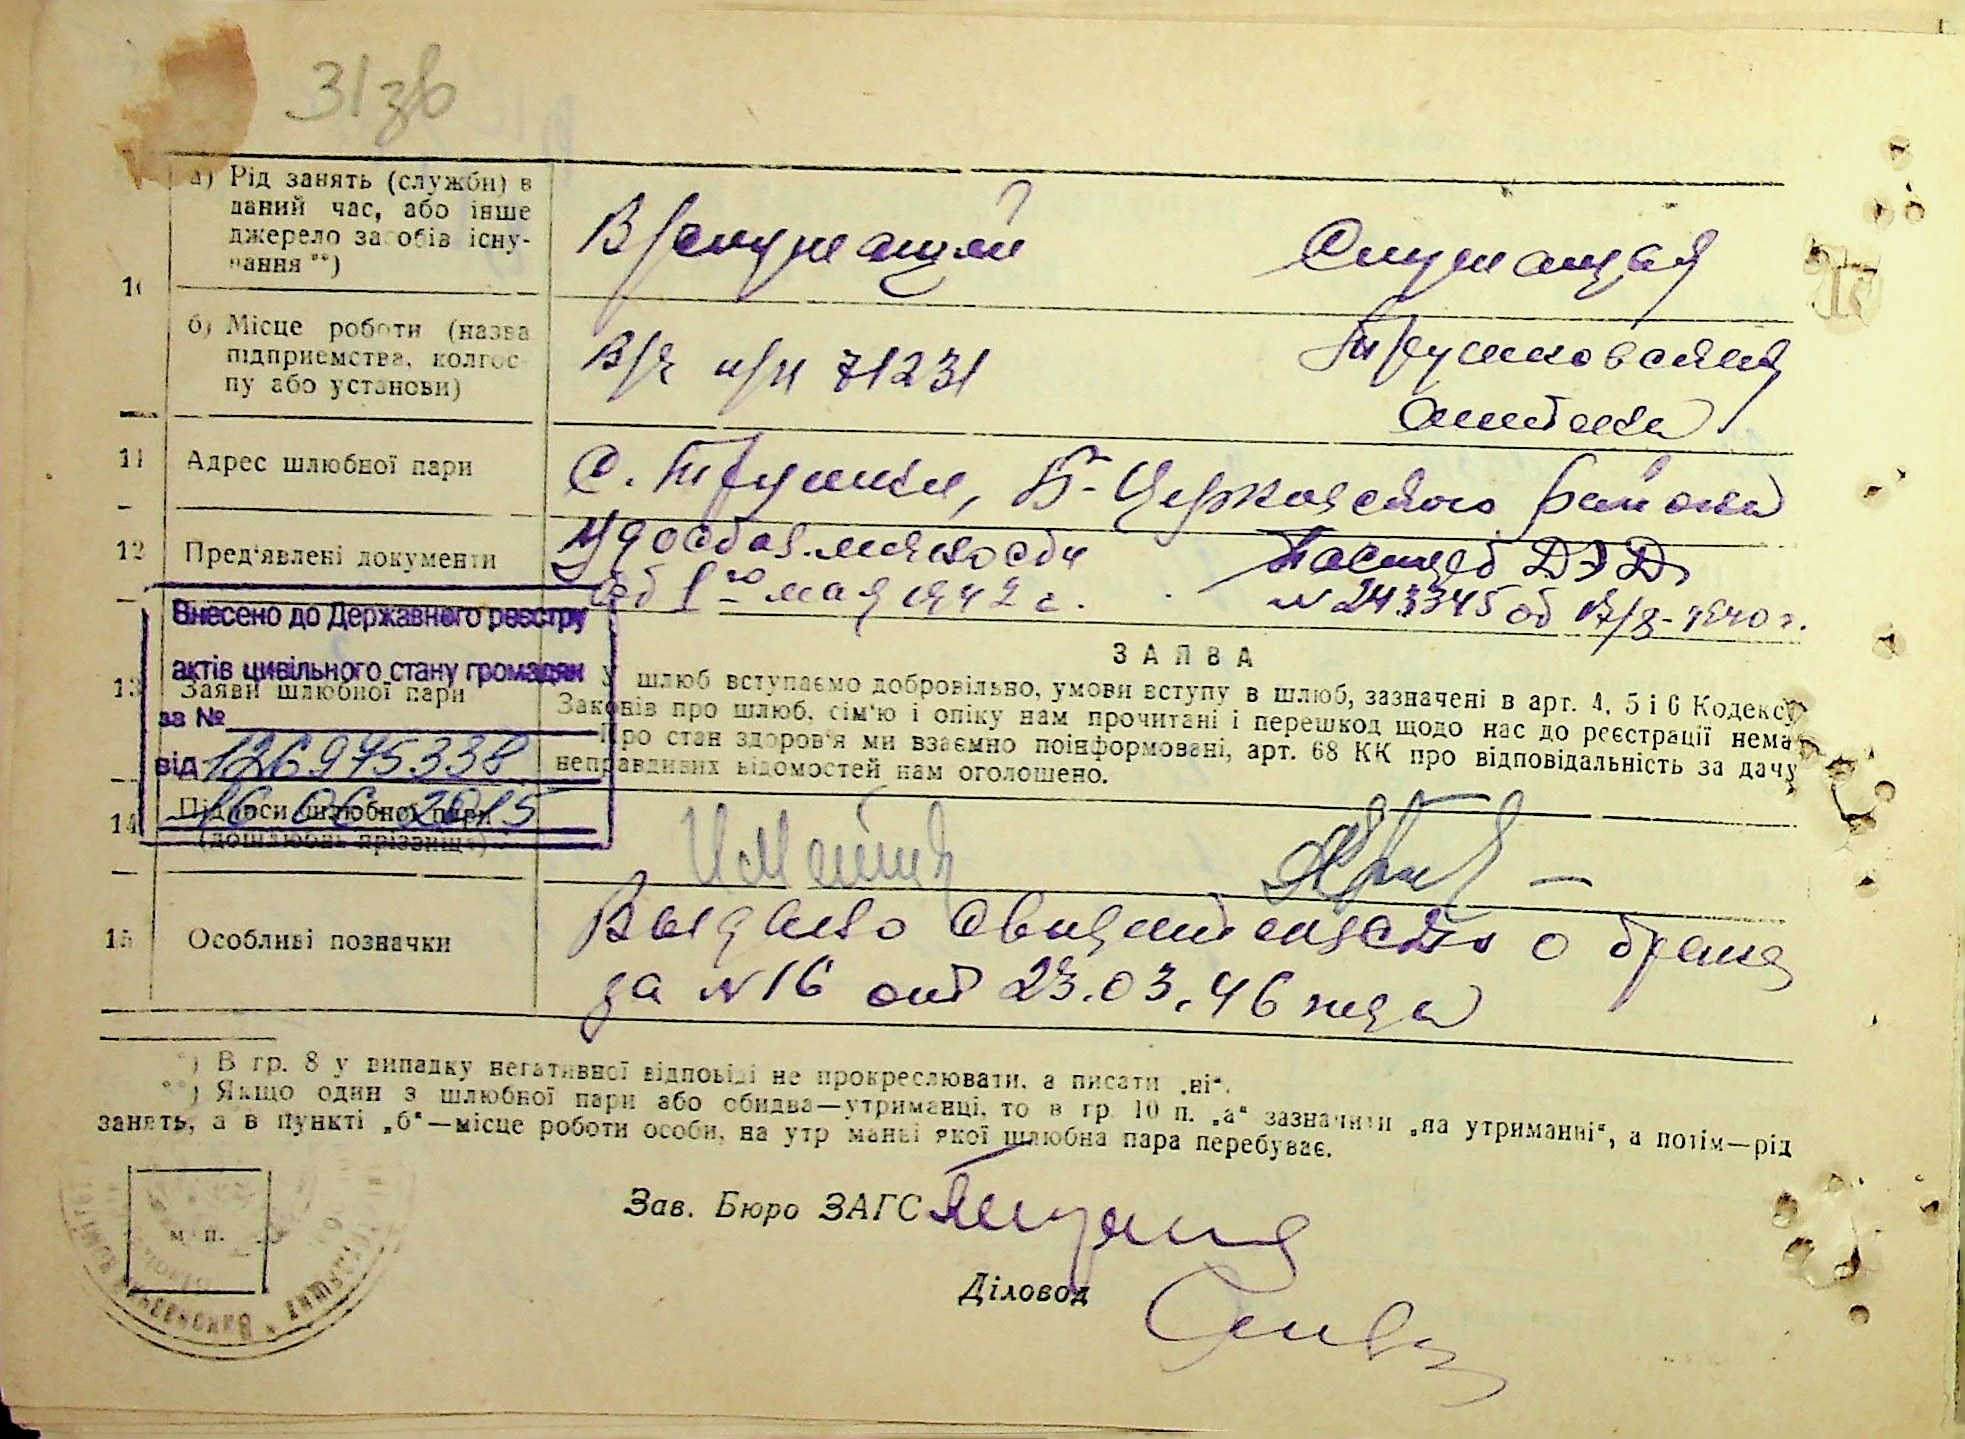 31зв
а) Рід занять (служби) в
даний час, або інше
джерело засобів існу-
вання **)
В/служащий
Служащая
10
б) Місце роботи (назва
підприємства, колгос-
пу або установи)
В/ч п/п 71231
Трушковская
аптека
11
Адрес шлюбної пари
С. Трушки, Б-Церковского района
12
Пред'явлені документи
Удостов. личности
Паспорт
от 1го мая 1942 г.
№ 243345 от 17/8-1940 г.
Внесено до Державного реєстру
актів цивільного стану громадян
за №
від 126975338
16 06 2015
13
Заяви шлюбної пари
ЗАЯВА
У шлюб вступаємо добровільно, умови вступу в шлюб, зазначені в арт. 4, 5 і 6 Кодексу
Законів про шлюб, сім'ю і опіку нам прочитані і перешкод щодо нас до реєстрації нема.
Про стан здоров'я ми взаємно поінформовані, арт. 68 КК про відповідальність за дачу
неправдивих відомостей нам оголошено.
14
Підписи шлюбної пари
(дошлюбні прізвища)
15
Особливі позначки
Выдано свидетельство о браке
за № 16 от 23.03.46 года
*) В гр. 8 у випадку негативної відповіді не прокреслювати, а писати „ні“.
**) Якщо один з шлюбної пари або обидва—утриманці, то в гр. 10 п. „а“ зазначити „на утриманні“, а потім—рід
занять, а в пункті „б“—місце роботи особи, на утриманні якої шлюбна пара перебуває.
м. п.
Зав. Бюро ЗАГС
Діловод